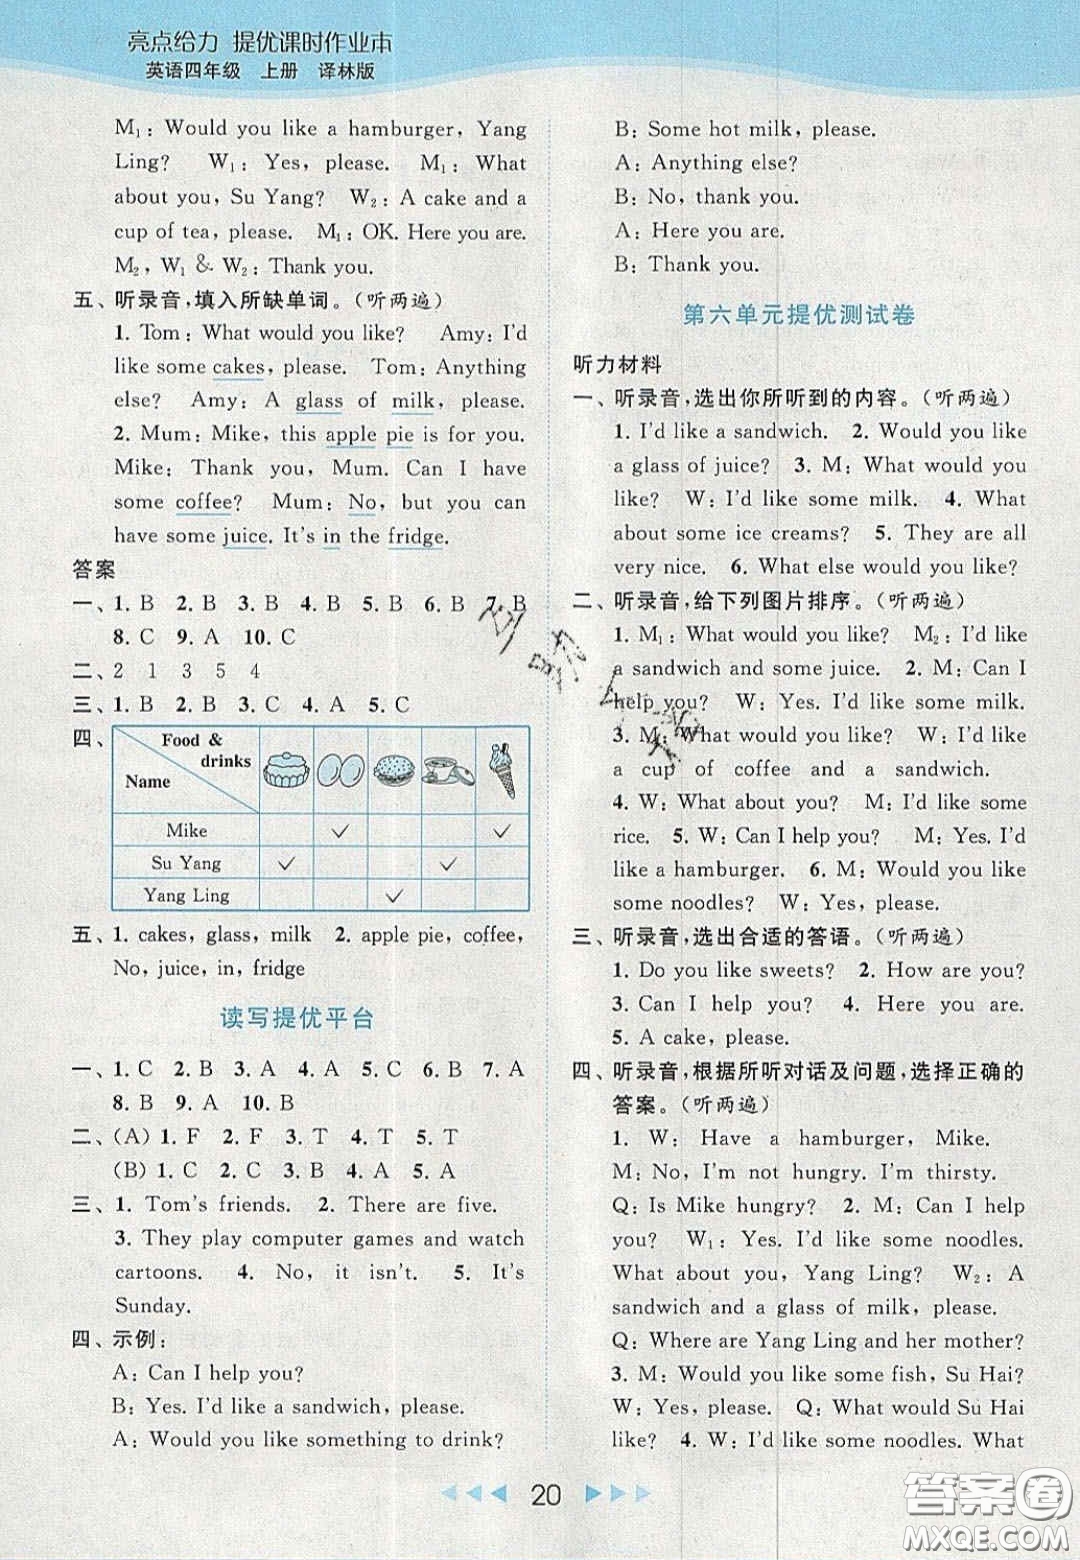 亮点给力 提优课时作业本
英语四年级 上册 译林版
M₁: Would you like a hamburger, Yang
Ling? W₁: Yes, please. M₁: What
about you, Su Yang? W₂: A cake and a
cup of tea, please. M₁: OK. Here you are.
M₂, W₁ & W₂: Thank you.
五、听录音,填入所缺单词。(听两遍)
1. Tom: What would you like? Amy: I'd
like some cakes, please. Tom: Anything
else? Amy: A glass of milk, please.
2. Mum: Mike, this apple pie is for you.
Mike: Thank you, Mum. Can I have
some coffee? Mum: No, but you can
have some juice. It's in the fridge.
答案
一、1. B 2. B 3. B 4. B 5. B 6. B 7. B
8. C 9. A 10. C
二、2 1 3 5 4
三、1. B 2. B 3. C 4. A 5. C
四、
Food &
drinks
Name
Mike ✓ ✓
Su Yang ✓ ✓
Yang Ling ✓
五、1. cakes, glass, milk 2. apple pie, coffee,
No, juice, in, fridge
读写提优平台
一、1. C 2. B 3. B 4. A 5. C 6. B 7. A
8. B 9. A 10. B
二、(A) 1. F 2. F 3. T 4. T 5. T
(B) 1. C 2. C 3. B 4. A 5. A
三、1. Tom's friends. 2. There are five.
3. They play computer games and watch
cartoons. 4. No, it isn't. 5. It's
Sunday.
四、示例:
A: Can I help you?
B: Yes. I'd like a sandwich, please.
A: Would you like something to drink?
B: Some hot milk, please.
A: Anything else?
B: No, thank you.
A: Here you are.
B: Thank you.
第六单元提优测试卷
听力材料
一、听录音,选出你所听到的内容。(听两遍)
1. I'd like a sandwich. 2. Would you like
a glass of juice? 3. M: What would you
like? W: I'd like some milk. 4. What
about some ice creams? 5. They are all
very nice. 6. What else would you like?
二、听录音,给下列图片排序。(听两遍)
1. M₁: What would you like? M₂: I'd like
a sandwich and some juice. 2. M: Can I
help you? W: Yes. I'd like some milk.
3. M: What would you like? W: I'd like
a cup of coffee and a sandwich.
4. W: What about you? M: I'd like some
rice. 5. W: Can I help you? M: Yes. I'd
like a hamburger. 6. M: Would you like
some noodles? W: Yes, please.
三、听录音,选出合适的答语。(听两遍)
1. Do you like sweets? 2. How are you?
3. Can I help you? 4. Here you are.
5. A cake, please.
四、听录音,根据所听对话及问题,选择正确的
答案。(听两遍)
1. W: Have a hamburger, Mike.
M: No, I'm not hungry. I'm thirsty.
Q: Is Mike hungry? 2. M: Can I help
you? W₁: Yes. I'd like some noodles.
What about you, Yang Ling? W₂: A
sandwich and a glass of milk, please.
Q: Where are Yang Ling and her mother?
3. M: Would you like some fish, Su Hai?
W: Yes, please. Q: What would Su Hai
like? 4. W: I'd like some noodles. What
20
答案圈
MXQE.COM